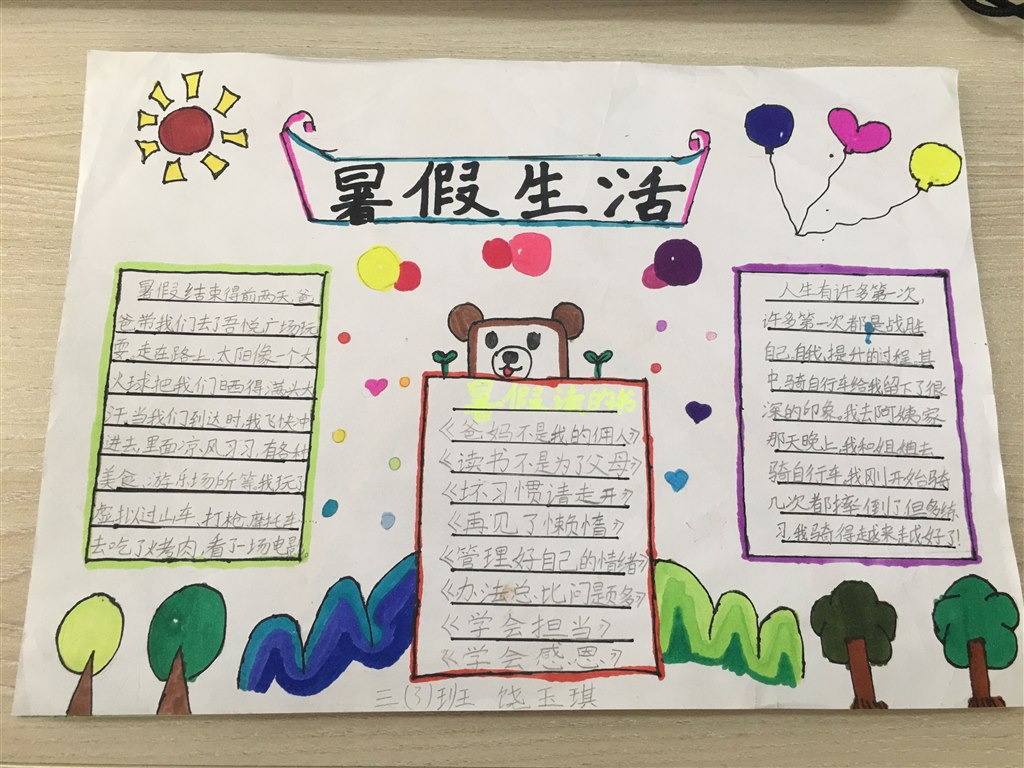 暑假生活
暑假结束得前两天,爸
爸带我们去了吾悦广场玩
耍,走在路上,太阳像一个大
火球把我们晒得满头大
汗,当我们到达时,我飞快冲
进去,里面凉风习习,有各种
美食、游乐场所等,我玩了
虚拟过山车、打枪、摩托车、
去吃了烤肉,看了一场电影
暑假读的书
《爸妈不是我的佣人》
《读书不是为了父母》
《坏习惯请走开》
《再见了懒惰》
《管理好自己的情绪》
《办法总比问题多》
《学会担当》
《学会感恩》
人生有许多第一次,
许多第一次都是战胜
自己,自我提升的过程,其
中骑自行车给我留下了很
深的印象,我去阿姨家
那天晚上,我和姐姐去
骑自行车,我刚开始骑
几次都摔倒了但多练
习,我骑得越来越好了!
三(3)班 饶玉琪